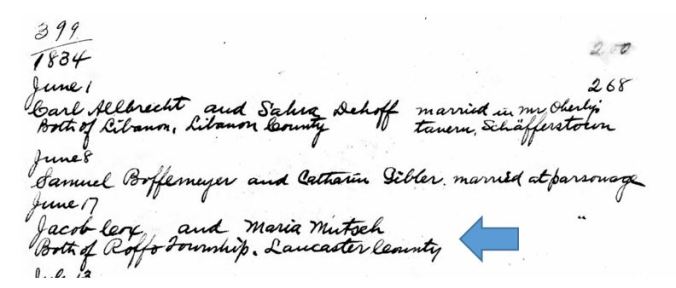 399
1834
200
June 1
268
Carl Allbrecht and Salva Dehoff married in Mr Oberly's
Both of Libanon, Libanon County tavern, Schäfferstown
June 8
Samuel Boffemeyer and Catharin Gibler. married at parsonage
June 17
Jacob Cox and Maria Mutsch "
Both of Roffo Township. Lancaster County
July 13